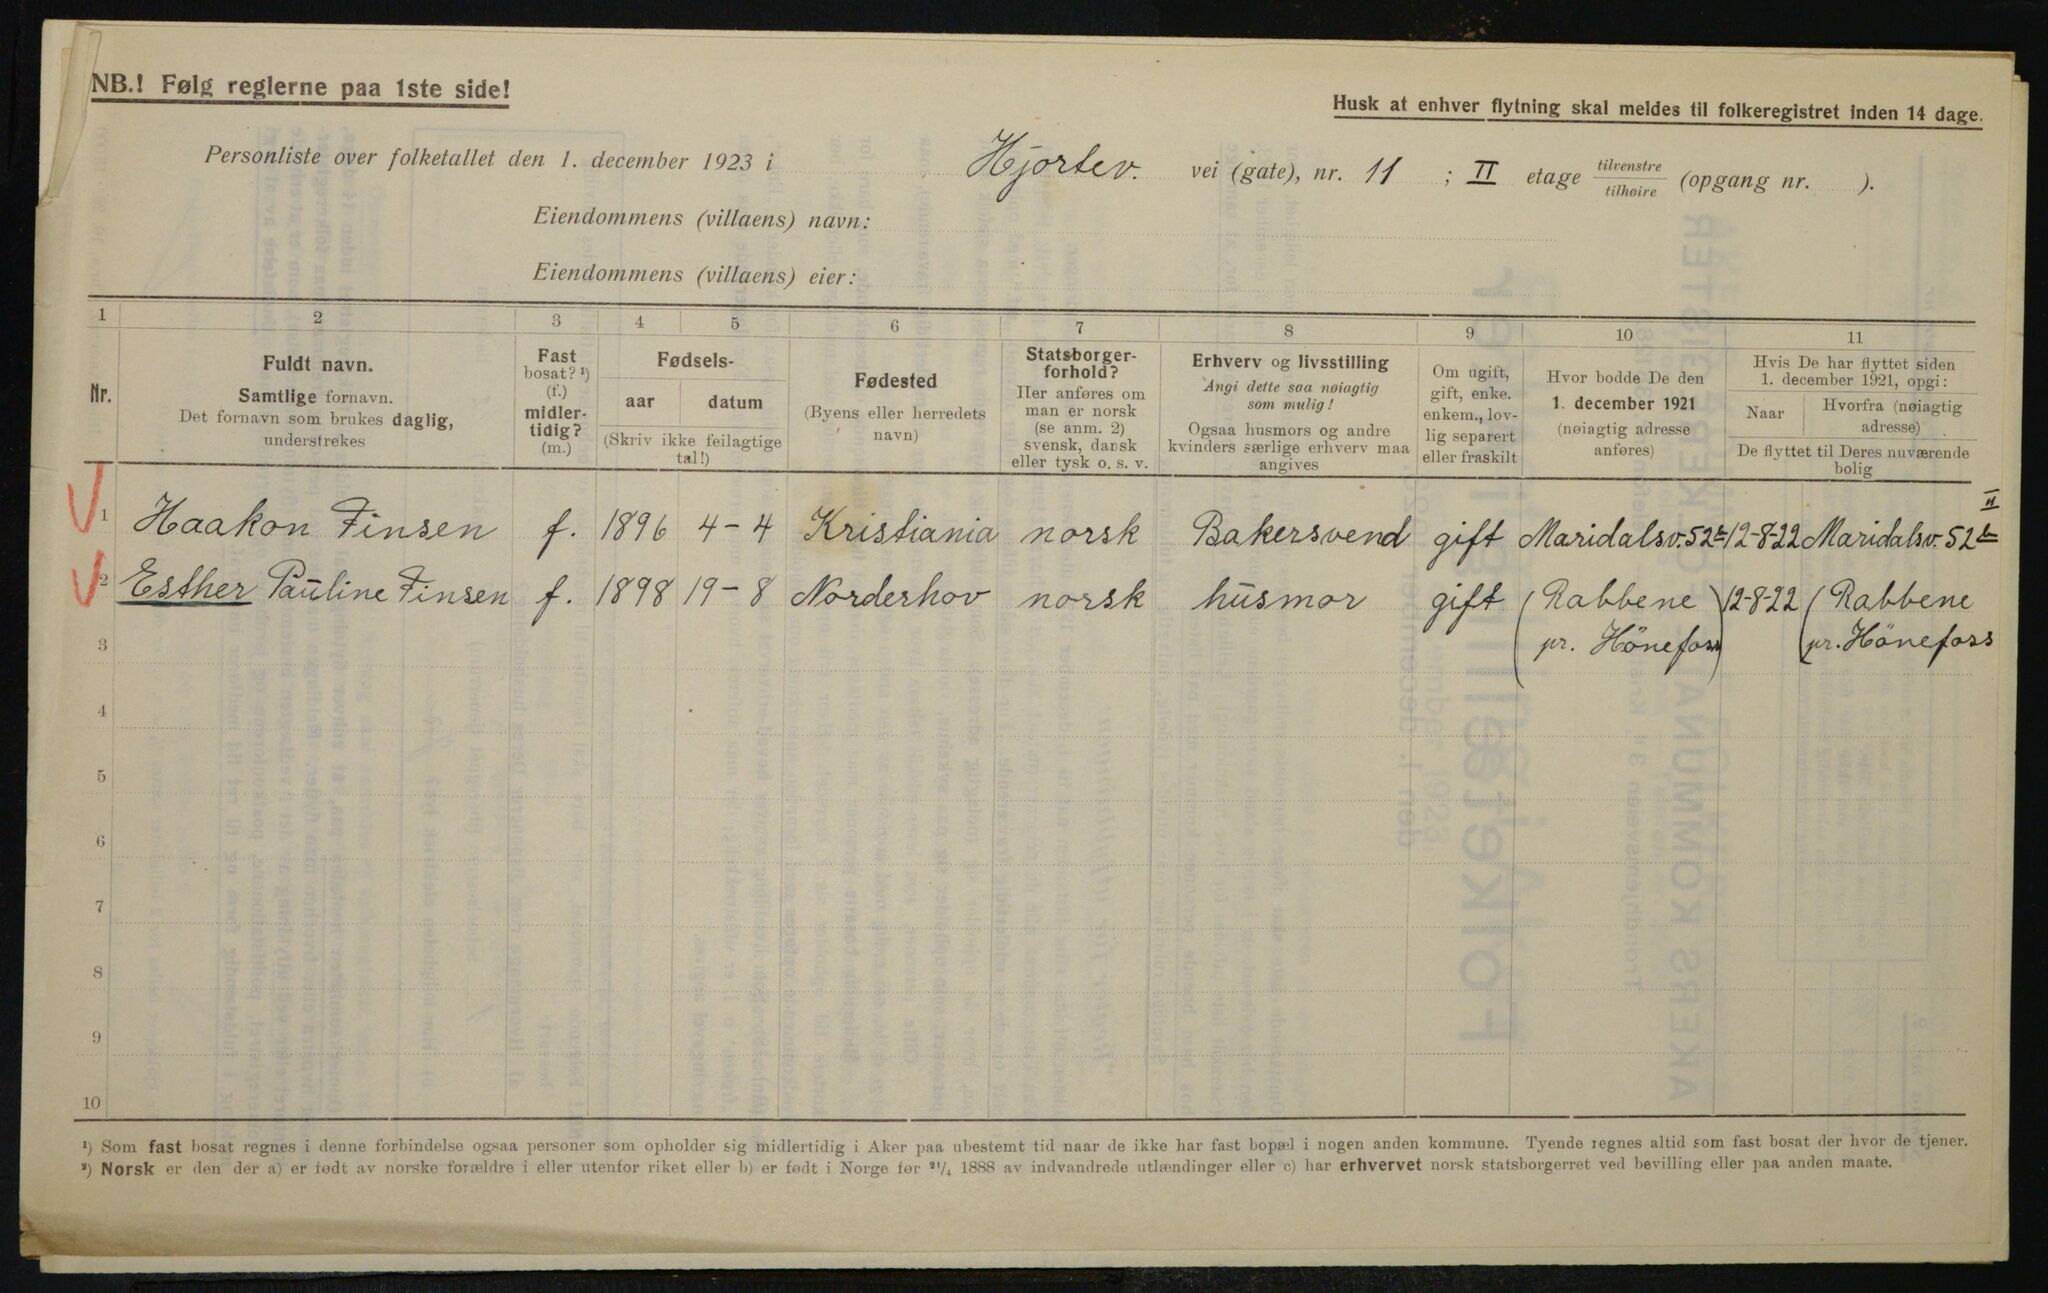 NB.! Følg reglerne paa 1ste side!
Husk at enhver flytning skal meldes til folkeregistret inden 14 dage.
Personliste over folketallet den 1. december 1923 i Hjortev. vei (gate), nr. 11 ; II etage tilvenstre/tilhøire (opgang nr. ).
Eiendommens (villaens) navn:
Eiendommens (villaens) eier:
1 2 3 4 5 6 7 8 9 10 11
Nr.
Fuldt navn.
Samtlige fornavn.
Det fornavn som brukes daglig,
understrekes
Fast
bosat? ¹)
(f.)
midler-
tidig?
(m.)
Fødsels-
aar datum
(Skriv ikke feilagtige
tal!)
Fødested
(Byens eller herredets
navn)
Statsborger-
forhold?
Her anføres om
man er norsk
(se anm. 2)
svensk, dansk
eller tysk o. s. v.
Erhverv og livsstilling
Angi dette saa nøiagtig
som mulig!
Ogsaa husmors og andre
kvinders særlige erhverv maa
angives
Om ugift,
gift, enke.
enkem., lov-
lig separert
eller fraskilt
Hvor bodde De den
1. december 1921
(nøiagtig adresse
anføres)
Hvis De har flyttet siden
1. december 1921, opgi:
Naar Hvorfra (nøiagtig
adresse)
De flyttet til Deres nuværende
bolig
1 Haakon Finsen f. 1896 4-4 Kristiania norsk Bakersvend gift Maridalsv. 52b 12-8-22 Maridalsv. 52b II
2 Esther Pauline Finsen f. 1898 19-8 Norderhov norsk husmor gift (Rabbene) 12-8-22 (Rabbene
3 pr. Hönefoss pr. Hönefoss
4
5
6
7
8
9
10
¹) Som fast bosat regnes i denne forbindelse ogsaa personer som opholder sig midlertidig i Aker paa ubestemt tid naar de ikke har fast bopæl i nogen anden kommune. Tyende regnes altid som fast bosat der hvor de tjener.
²) Norsk er den der a) er født av norske forældre i eller utenfor riket eller b) er født i Norge før ²¹/₄ 1888 av indvandrede utlændinger eller c) har erhvervet norsk statsborgerret ved bevilling eller paa anden maate.